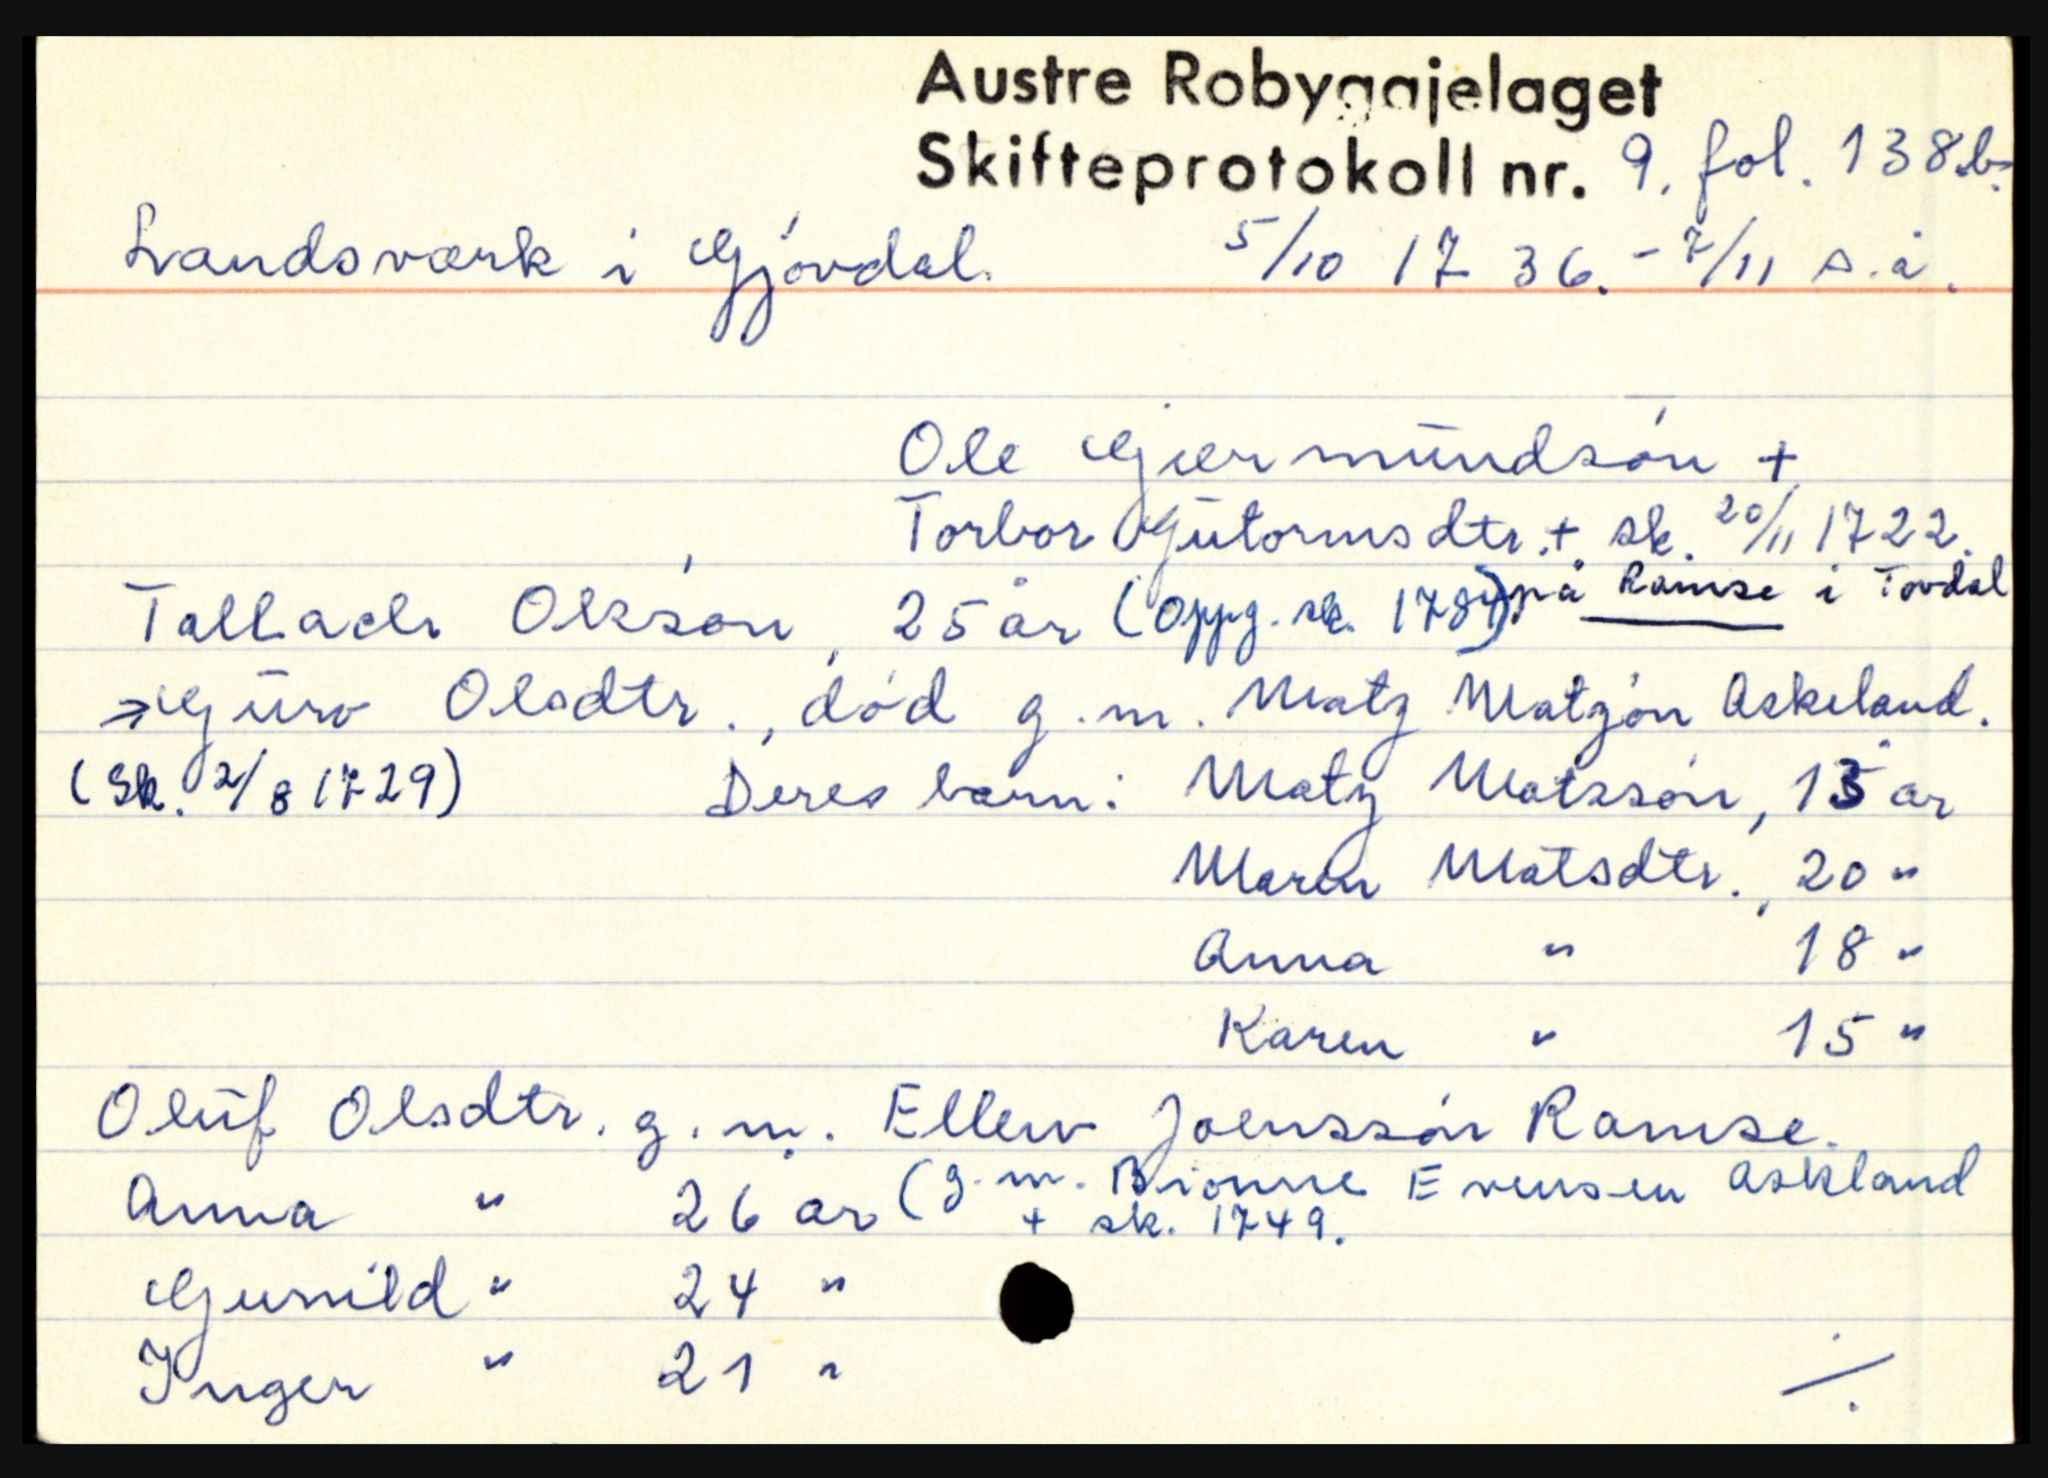 Austre Robyggjelaget
Skifteprotokoll nr. 9. fol. 138.b.
Landsværk i Gjövdal. 5/10 1736. - 7/11 s.å.
Ole Gjermundsón +
Torbor Gutormsdtr. + sk. 20/11 1722.
Tallach Olssón, 25 år (Oppg. sk. 1784) på Ramse i Tovdal
→ Guro Olsdtr., död g.m. Matz Matzón Askeland.
(Sk. 2/8 1729) Deres barn: Matz Matssón, 13 år
Maren Matsdtr., 20 "
Anna " 18 "
Karen " 15 "
Oluf Olsdtr. g.m. Ellev Joenssón Ramse.
Anna " 26 år (g.m. Bionne Evensen Askland
+ sk. 1749.
Gunild " 24 "
Inger " 21 "
./.